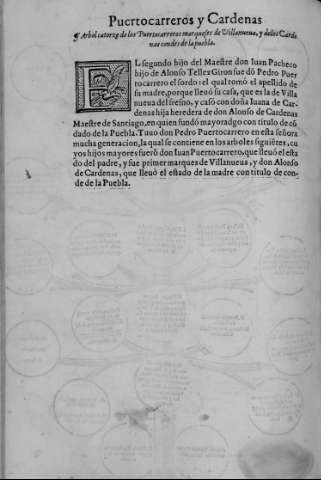 Puertocarreros y Cardenas
¶ Arbol catorze de los Puertocarreros marqueses de Villanueua, y delos Carde
nas condes de la puebla.
EL segundo hijo del Maestre don Iuan Pacheco
hijo de Alonso Tellez Giron fue dō Pedro Puer
tocarrero el sordo: el qual tomó el apellido de
su madre, porque lleuó su casa, que es la de Villa
nueua del fresno, y casó con doña Iuana de Car-
denas hija heredera de don Alonso de Cardenas
Maestre de Santiago, en quien fundó mayoradgo con titulo de cō
dado de la Puebla. Tuuo don Pedro Puertocarrero en esta señora
mucha generacion, la qual se contiene en los arboles siguiētes, cu
yos hijos mayores fuerō don Iuan Puertocarrero, que lleuó el esta
do del padre, y fue primer marques de Villanueua, y don Alonso
de Cardenas, que lleuó el estado de la madre con titulo de con-
de de la Puebla.